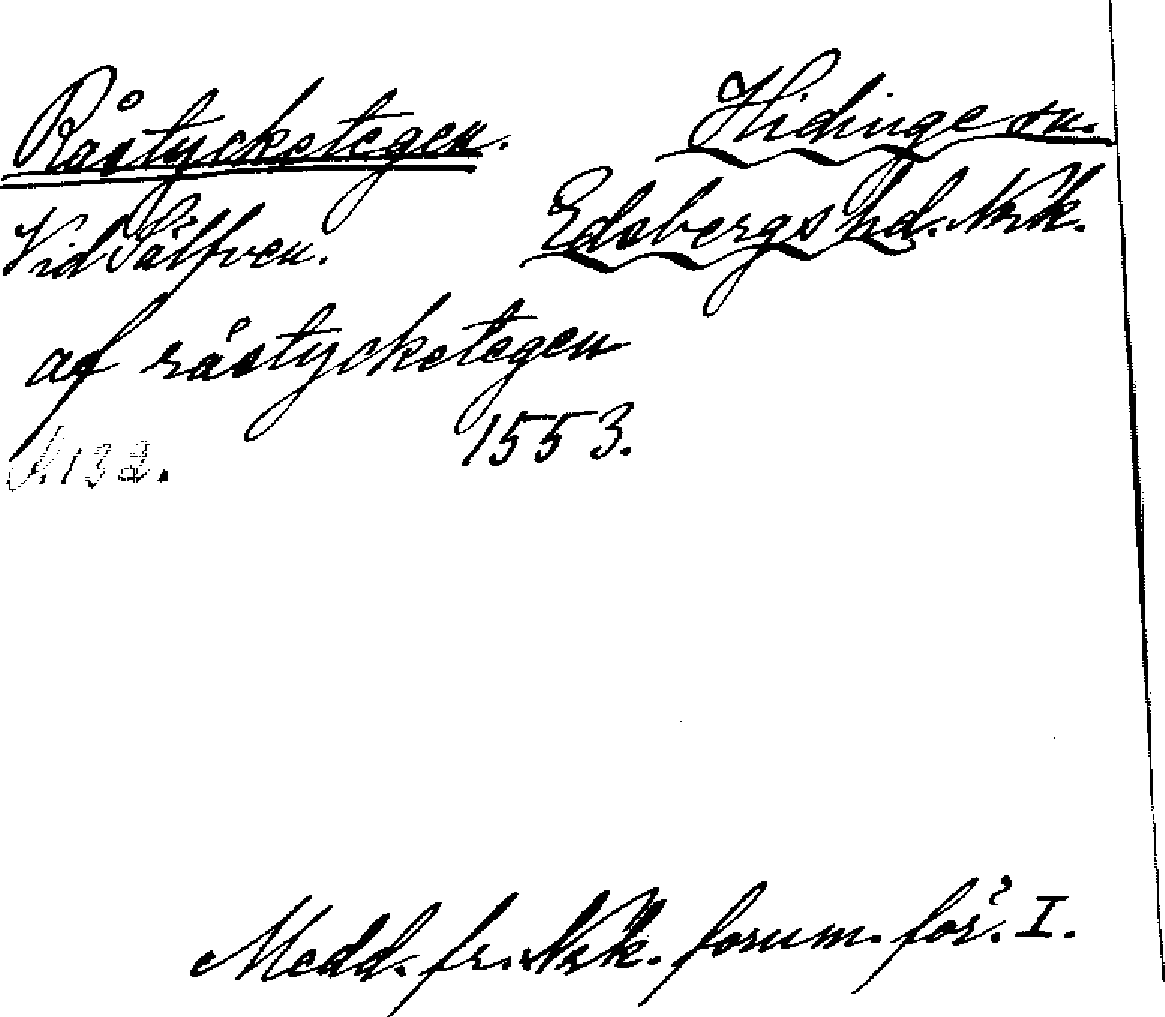 Råstycketegen. Hidinge sn.
Vid Sälfven. Edsbergs hd. Nrk.
af råstycketegen
1553.
132.
Medd. fr. Nrk. fornm. för. I.